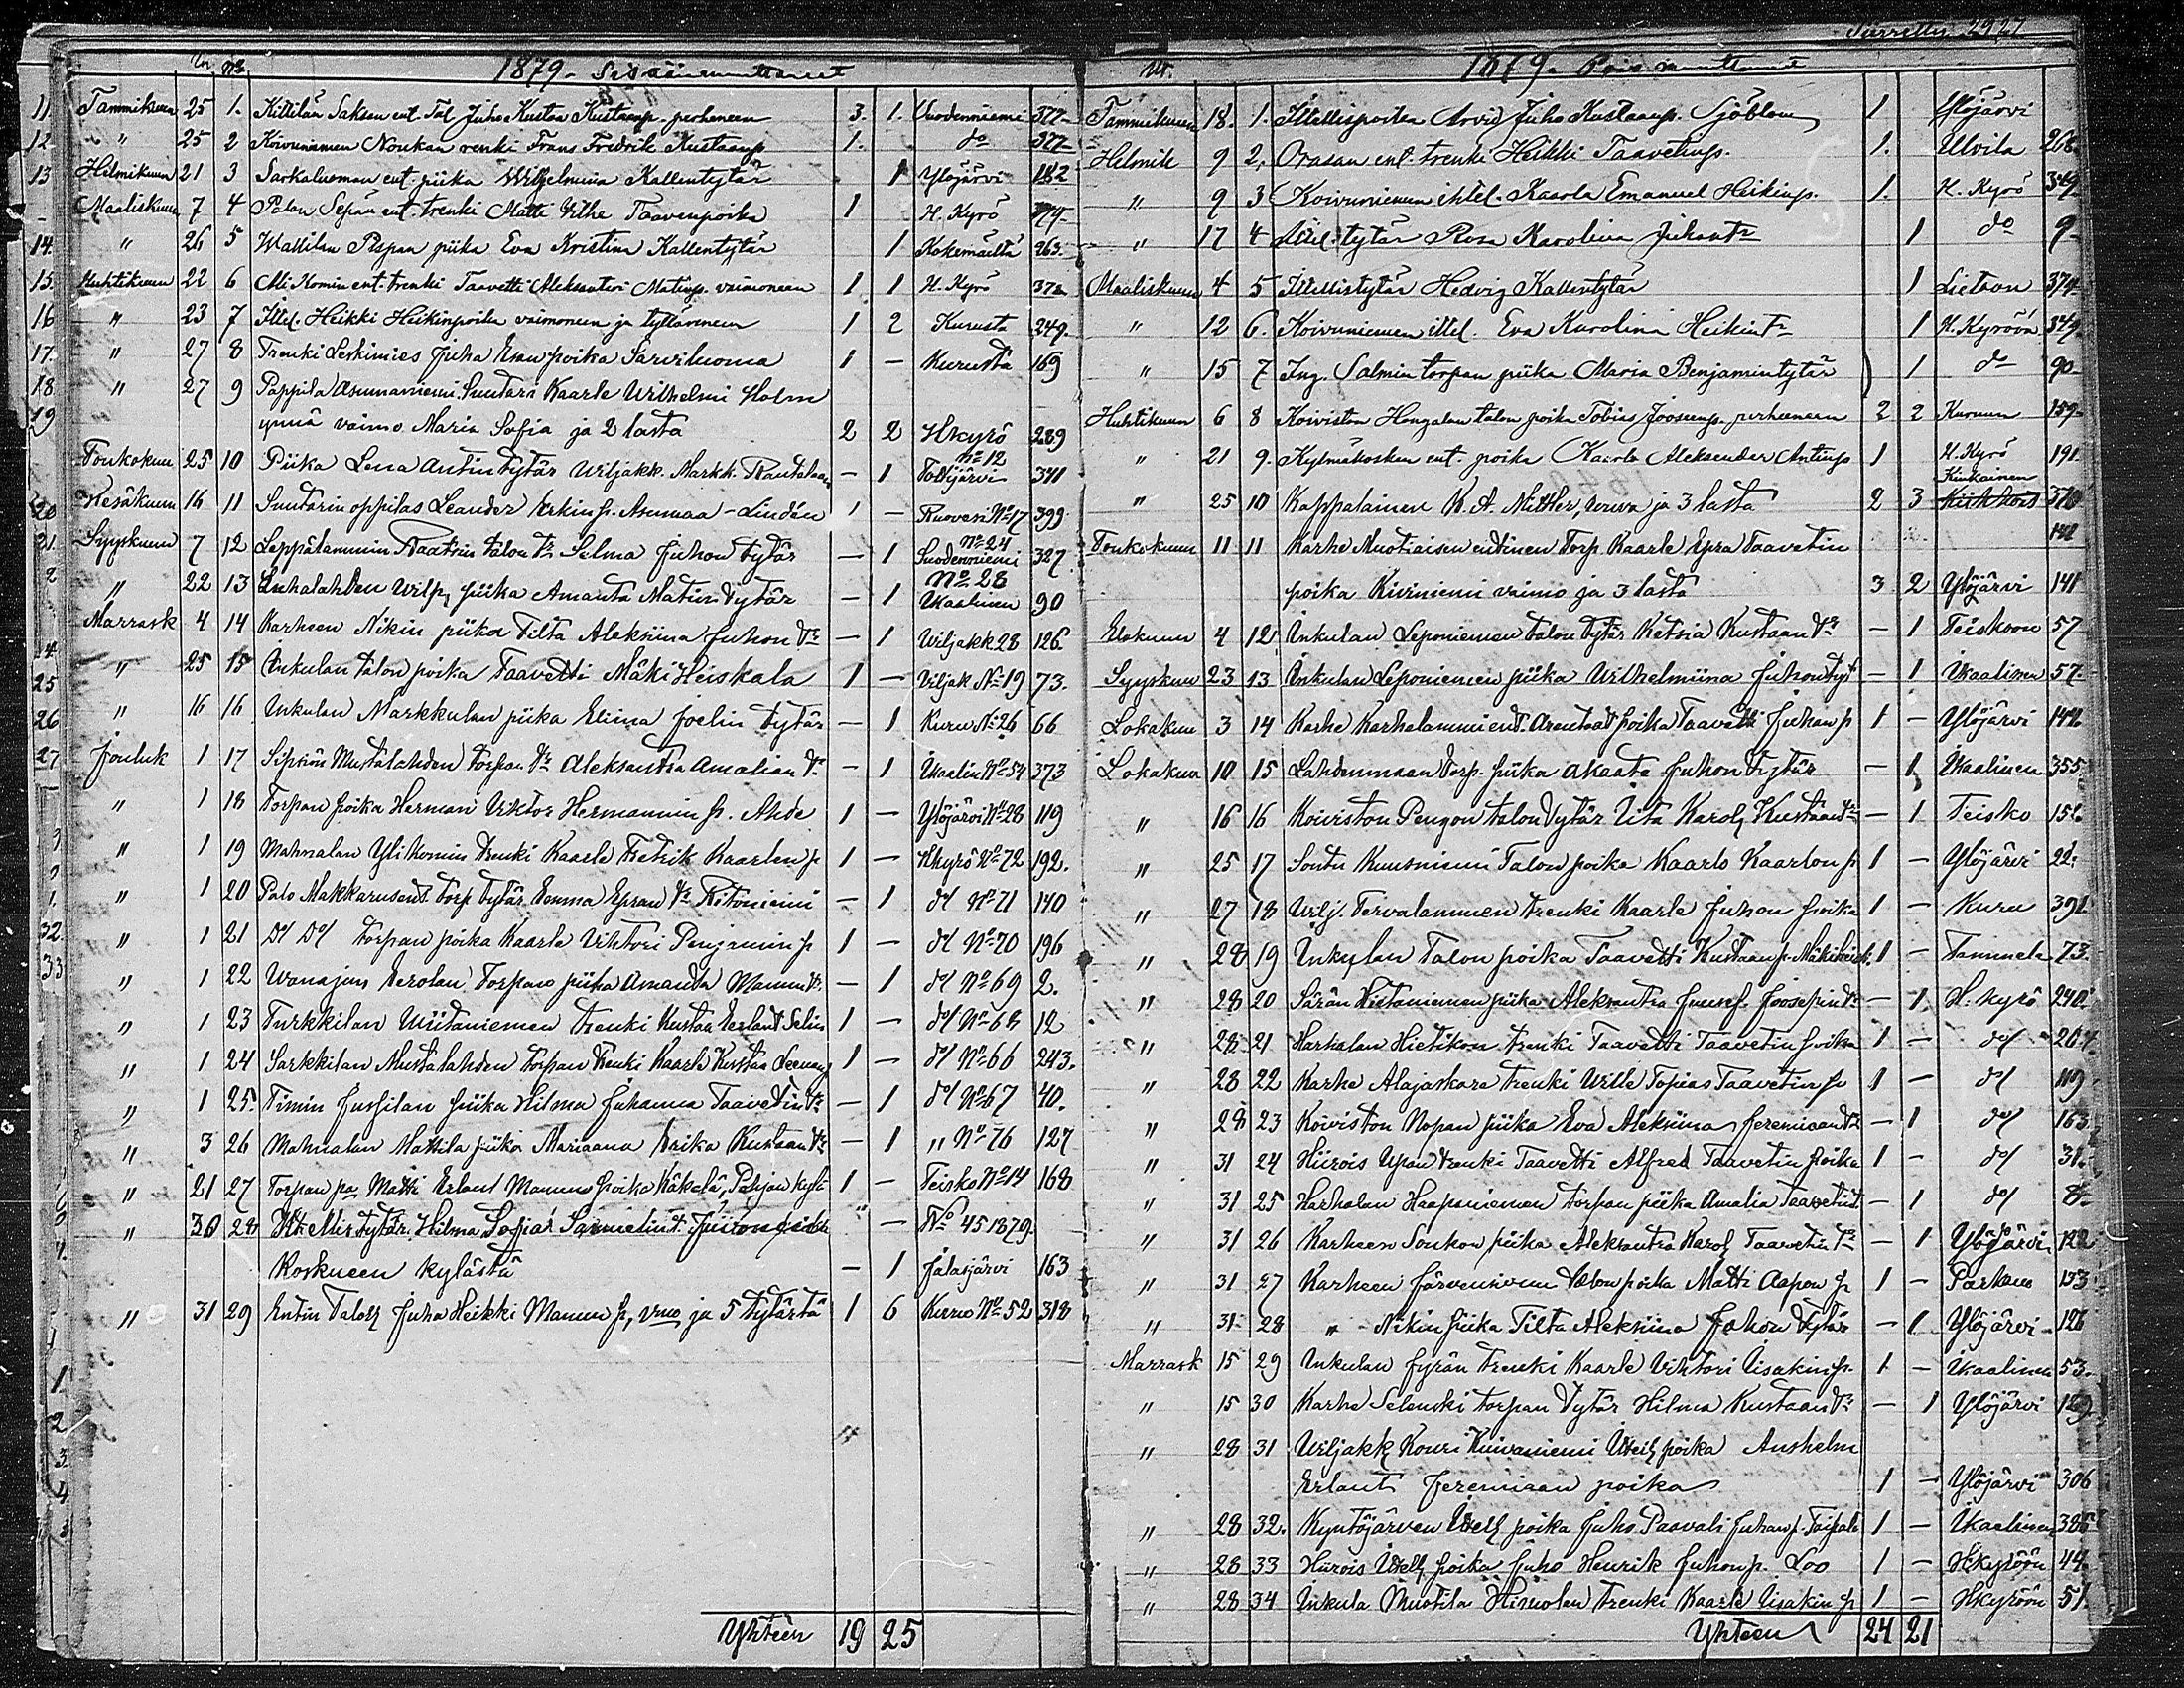 Siirrettu 2927
1879 - Sisäänmuuttaneet
No
11 Tammikuun 25 1. Kittilän Saksan ent. Tal Juho Kustaa Kustaanp. perheneen 3. 1. Suodenniemi 377
12 " 25 2 Koivuniemen Noukan renki Frans Fredrik Kustaanp 1. do 377
13 Helmikuun 21 3 Sarkalusman ent piika Wilhelmina Kallentytär 1 Ylöjärvi 182
Maaliskuun 7 4 Palon Sepän ent. trenki Matti Taavenpoika 1 H. Kyrö
14. " 26 5 Mattilan Pispan piika Eva Kristina Kallentytär 1 Kokemäeltä 263.
15. Huhtikuun 22 6 Ali Komin ent. trenki Taavetti Aleksanteri Matinp. vaimoneen 1 1 H. Kyrö 372
16 " 23 7 Ittel. Heikki Heikinpoika vaimoneen ja tyttärineen 1 2 Kurusta 249.
17. " 27 8 Trenki Leskimies Juha Esanpoika Sarviluoma 1 - Kurusta 169
18. " 27 9 Pappila Asumaniemi Suutari Kaarle Wilhelmi Holm
19 ynnä vaimo Maria Sofia ja 2 lasta 2 2 Hkyrö 289
Toukokuu 25 10 Piika Lena Antintytär Wiljakk. Markk. Rautalan - 1 No 12 Pälkjärvi 341
20 Kesäkuun 16 11 Suutarin oppilas Leander Erkinp. Asumaa - Lindén 1 - Ruovesi No 17 399
21. Syyskuun 7 12 Leppälammin Raatrin talon tr Selma Juhon tytär - 1 No 24 Suodenniemi 327
" 22 13 Luhalahden Wilp. piika Amanta Matintytär - 1 No 28 Ikaalinen 90
Marrask 4 14 Karheen Nikin piika Tilta Aleksiina Juhon tr - 1 Viljakk 28 126
25 " 25 15 Inkulan talon poika Taavetti Mäki Heiskala 1 - Viljak No 19 73.
26 " 16 16 Inkulan Markkulan piika Elina Joelin tytär - 1 Kuru No 26 66
27 Jouluk 1 17 Sipsiön Mustalahden torpan tr Aleksantra Amalian tr - 1 Ikaalin No 54 373
" 1 18 Torpan poika Herman Viktor Hermannin p. Ahde 1 - Ylöjärvi No 28 119
" 1 19 Mahnalan Ylikomin trenki Kaarle Fetrik Kaarlen p 1 - Hkyrö No 72 192.
" 1 20 Palo Makkarusent. torp tytär Emma Epran tr Ritoniemi - 1 do No 71 140
32. " 1 21 Do Do torpan poika Kaarle Vihtori Penjamin p 1 - do No 70 196
33 " 1 22 Wanajan Eerolan Torpan piika Amanda Manun tr - 1 do No 69 2.
" 1 23 Turkkilan Uiitaniemen trenki Kustaa Eerlant Selin 1 - do No 68 12
" 1 24 Sarkkilan Mustalahden torpan trenki Kaarle Kustaa 1 - do No 66 243.
" 1 25. Timin Jussilan piika Hilma Juhanna Taavetin tr - 1 do No 67 40.
" 3 26 Mahnalan Mattila piika Mariaana Erika Kustaan tr - 1 " No 76 127
" 21 27 Torpan pa Matti Erlant Manunpoika Käkelä, Pohjan kylä 1 - Teisko No 14 168
" 30 28 Itellis tytär Hilma Sofia Samelint. - No 45 1879.
Koskueen kylästä - 1 Jalasjärvi 163
" 31 29 Entin Talol Juha Heikki Manun p, vmo ja 5 tytärtä 1 6 Kuruo No 52 318
Yhteen 19 25
1879. Pois muuttanut
Tammikuun 18. 1. Itellispoika Arvid Juho Kustaanp. Sjöblom 1 Ylöjärvi
Helmik 9 2. Orasan ent. trenki Heikki Taavetinp. 1. Ulvila 268.
" 9 3 Koivuniemen ittel. Kaarla Emanuel Heikinp. 1. H. Kyrö 349
" 17 4 Ittel. tytär Rosa Karolina Juhontr 1 do 9
Maaliskuun 4 5 Itellistytär Hedvig Kallentytär 1 Lietson 374
" 12 6. Koivuniemen ittel. Eva Karolina Heikintr 1 H. Kyröön 349
" 15 7 Ing. Salmin torpan piika Maria Benjamintytär 1 do 90
Huhtikuun 6 8 Koiviston Hongalan talon poika Tobias Joosenp. perheineen 2 2 Kuruun 159
" 21 9. Kylmäkosken ent. poika Kaarlo Aleksander Antinp 1 H. Kyrö 191
" 25 10 Kappalainen K. A. Mittler, vmva ja 3 lasta 2 3 Kiukainen
Toukokuun 11 11 Karhe Muotiaisen entinen Torp Kaarle Epra Taavetin 142
poika Kiviniemi vaimo ja 3 lasta 3 2 Ylöjärvi 141
Elokuun 4 12 Inkulan Leponiemen talon tytär Ketsia Kustaan tr - 1 Teiskoon 57
Syyskuu 23 13 Inkulan Leponiemen piika Wilhelmiina Juhon tyt - 1 Ikaalinen 57
Lokakuu 3 14 Karhe Karhelammi ent. poika Taavetti Juhan p 1 - Ylöjärvi 142
Lokakuu 10 15 Lahdenmaan torp. piika Akaata Juhon tytär - 1 Ikaalinen 355
" 16 16 Koiviston Pengon talon tytär Iita Karol Kustaan tr - 1 Teisko 152
" 25 17 Sontu Kuusniemi Talon poika Kaarlo Kaarlon p 1 - Ylöjärvi 22.
" 27 18 Wilj. Tervalammen trenki Kaarle Juhon poika 1 - Kuru 391
" 28 19 Inkulan Talon poika Taavetti Kustaan p. Mäkiheisk. 1 - Tammela 73.
" 28 20 Särän Kistaniemen piika Aleksantra Joosepin tr - 1 H. Kyrö 240
" 28 21 Harhalan Hietikon trenki Taavetti Taavetin poika 1 - do 204.
" 28 22 Karhe Alajaskara trenki Wille Topias Taavetin p 1 - do 119
" 28 23 Koiviston Nopan piika Eva Aleksiina Jeremiaan tr - 1 do 163
" 31 24 Hiirois Upan trenki Taavetti Alfred Taavetin poika 1 - do 31.
" 31 25 Harhalan Haapaniemen torpan piika Amalia Taavetint - 1 do 8.
" 31 26 Karheen Soukon piika Aleksantra Karol Taavetin tr - 1 Ylöjärvi 122
" 31 27 Karheen Järvensivun talon poika Matti Aapon p 1 - Parkano 133
" 31 28 " Nikin piika Tilta Aleksiina Juhon tytär - 1 Ylöjärvi 126
Marrask 15 29 Inkulan Jyrän trenki Kaarle Vihtori Iisakin p. 1 - Ikaalinen 53.
" 15 30 Karhe Selenski torpan tytär Hilma Kustaan tr - 1 Ylöjärvi 129
" 28 31 Viljakk Kouri Kuivaniemi Iteil poika Anshelm
Erlant Jeremiaan poika 1 - Ylöjärvi 306
" 28 32. Kyntöjärven Itell poika Juho Paavali Juhan p. Taipale 1 - Ikaalinen 386
" 28 33 Hiirois Itell poika Juho Henrik Juhon p. Loo 1 - Hkyröön 44.
" 28 34 Inkula Muotila Himolan trenki Kaarle Iisakin p 1 - Hkyröön 51.
Yhteen 24 21